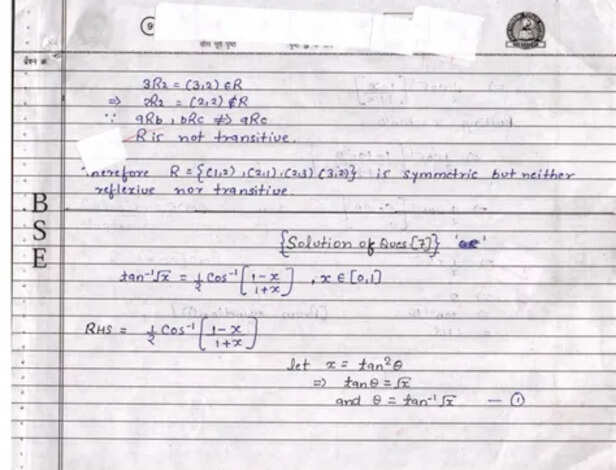 9
3R2 = (3,2) ∈ R
⇒ 2R2 = (2,2) ∉ R
∵ aRb, bRc ⇏ aRc
R is not transitive.
Therefore R = {(1,2), (2,1), (2,3) (3,2)} is symmetric but neither
reflexive nor transitive.
B
S
E
{Solution of Ques [7]} 'OR'
tan⁻¹√x = 1/2 Cos⁻¹ [1-x / 1+x], x ∈ [0,1]
RHS = 1/2 Cos⁻¹ [1-x / 1+x]
let x = tan²θ
⇒ tanθ = √x
and θ = tan⁻¹√x — ①